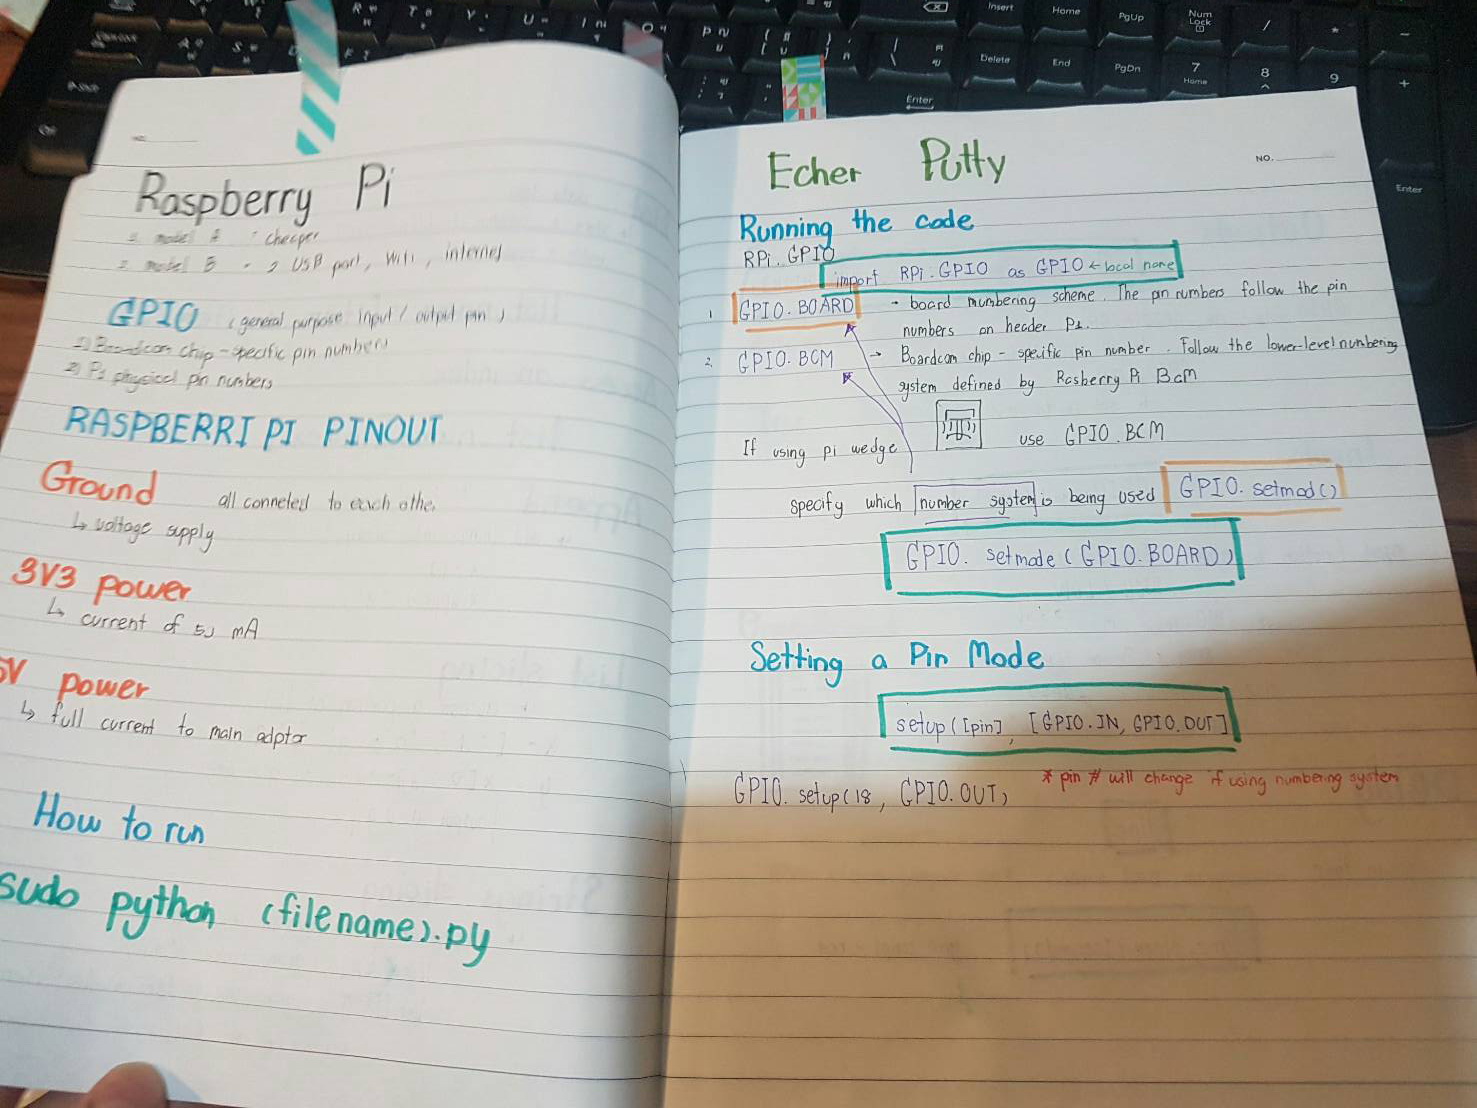 Raspberry Pi
1. model A : cheeper
2. model B - 2 USB port, wifi, internet
GPIO (general purpose input / output pin)
1) Boardcom chip - specific pin numbers
2) P1 physical pin numbers
RASPBERRI PI PINOUT
Ground all conneted to each other
↳ voltage supply
3V3 power
↳ current of 50 mA
5V power
↳ full current to main adptor
How to run
sudo python (filename).py
Echer Putty
NO.
Running the code
RPi.GPIO
import RPi.GPIO as GPIO ← local name
1. GPIO.BOARD - board numbering scheme. The pin numbers follow the pin
numbers on header P1.
2. GPIO.BCM → Boardcom chip - specific pin number. Follow the lower-level numbering
system defined by Rasberry Pi BCM
If using pi wedge use GPIO.BCM
specify which number system is being used GPIO.setmod()
GPIO.setmode(GPIO.BOARD)
Setting a Pin Mode
setup([pin], [GPIO.IN, GPIO.OUT]
GPIO.setup(18, GPIO.OUT) * pin # will change if using numbering system
Insert
Home
PgUp
Num Lock
/
*
-
Delete
End
PgDn
7
Home
8
9
+
Enter
Enter